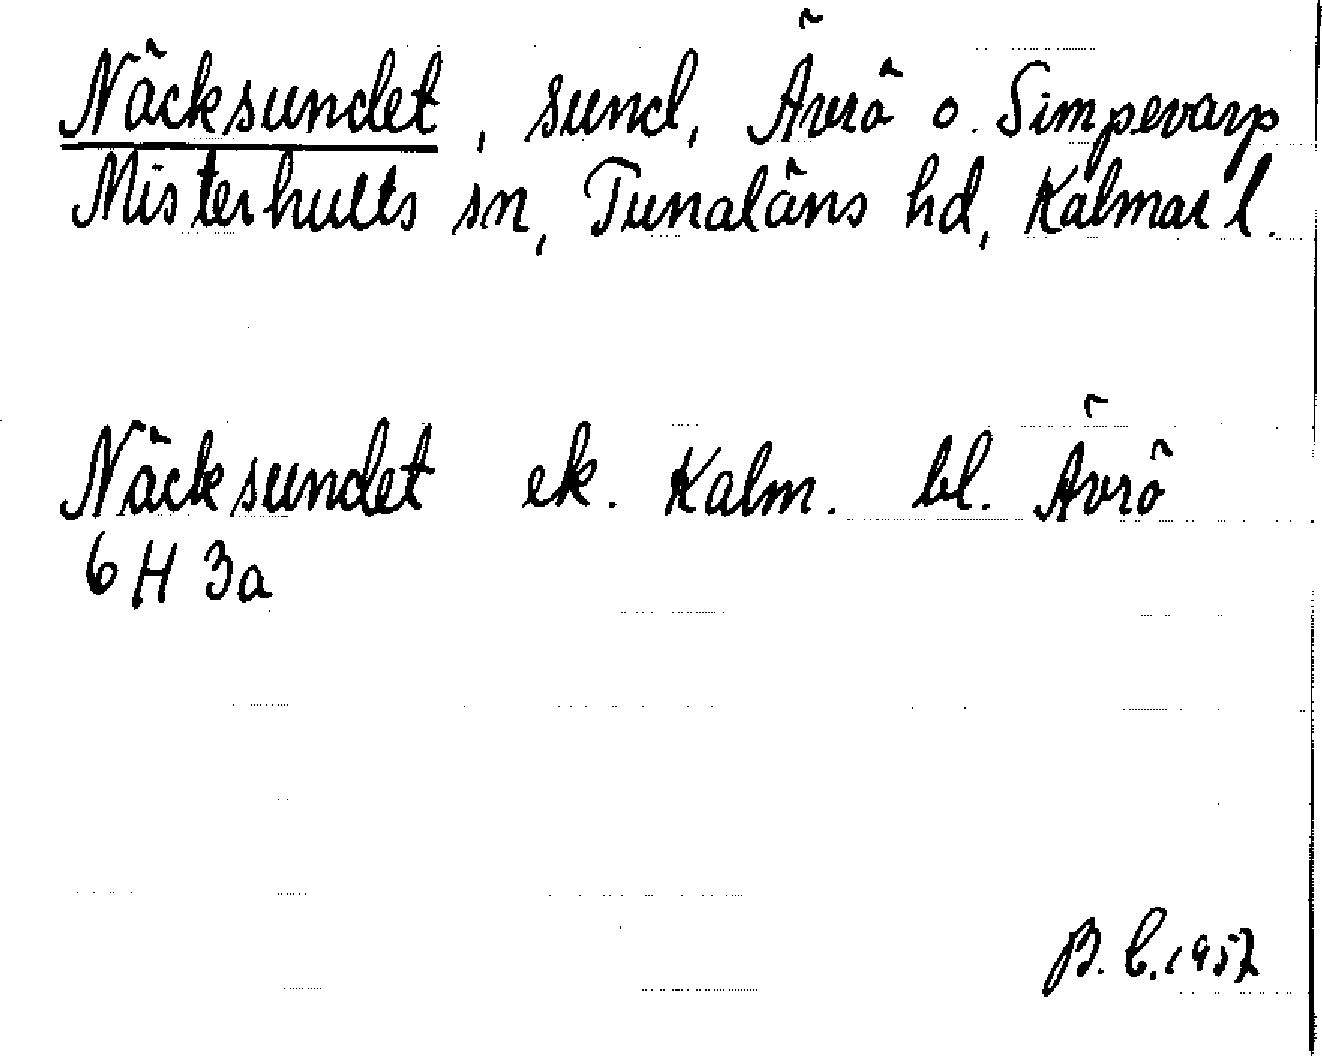 Näcksundet, sund, Ävrö o. Simpevarp
Misterhults sn, Tunaläns hd, Kalmar l.
Näcksundet ek. Kalm. bl. Ävrö
6 H 3a
B. C. 1957